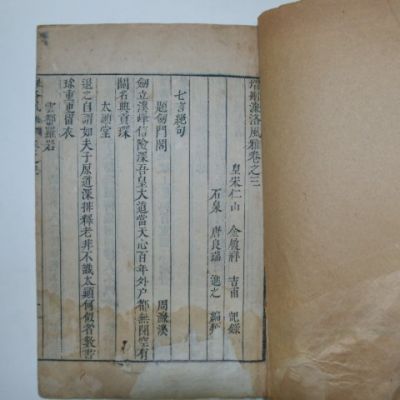 增刪濂洛風雅卷之三
皇宋仁山 金履祥 吉甫 記錄
石泉 唐良瑞 進之 編次
七言絕句
題劍門關 周濂溪
劍立溪峰信險深吾皇大道當天心百年外戶都無閉空有
關名點貢琛
太顚堂
退之自謂如夫子原道深排釋老非不識太顚何似者數書
珍重更留衣
雲都羅岩